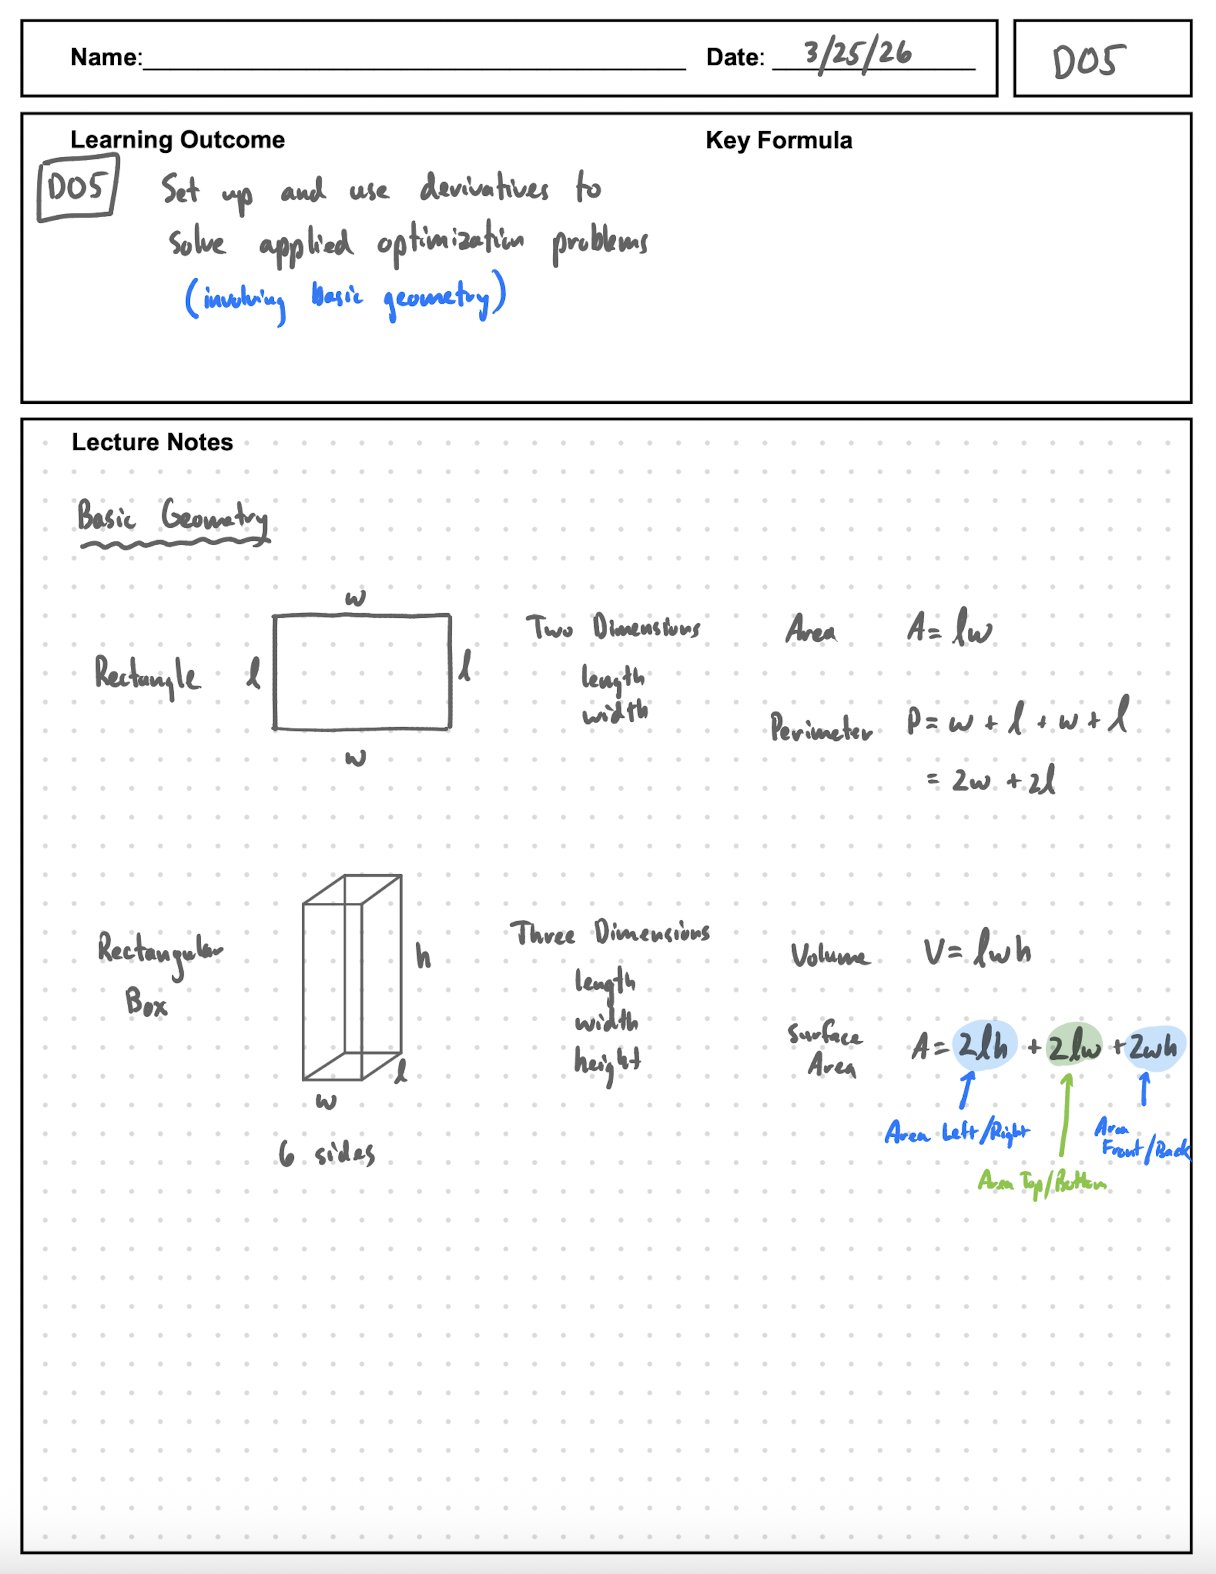 Name: Date: 3/25/26 DO5
Learning Outcome Key Formula
DO5 Set up and use derivatives to
solve applied optimization problems
(involving basic geometry)
Lecture Notes
Basic Geometry
w
Rectangle l l
w
Two Dimensions
length
width
Area A = lw
Perimeter P = w + l + w + l
= 2w + 2l
Rectangular
Box
h
l
w
6 sides
Three Dimensions
length
width
height
Volume V = lwh
Surface
Area A = 2lh + 2lw + 2wh
Area Left/Right
Area Top/Bottom
Area
Front/Back